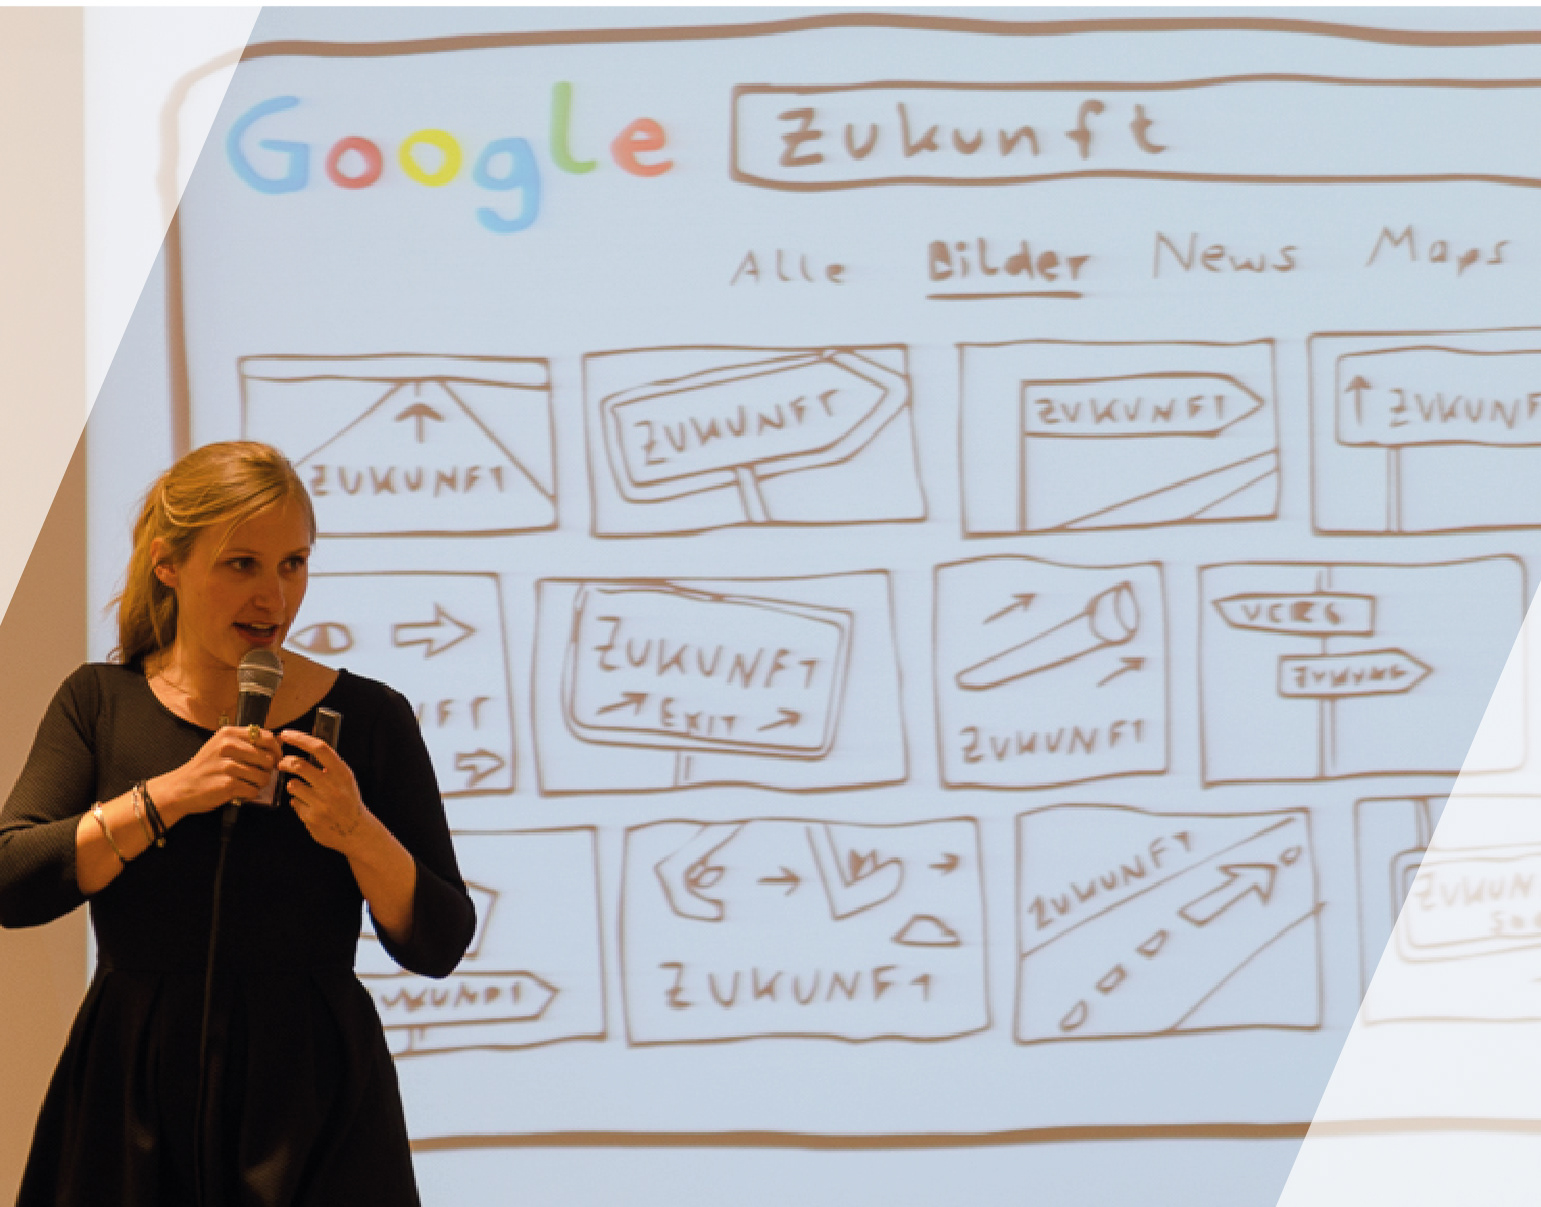 Google Zukunft
Alle Bilder News Maps
ZUKUNFT
ZUKUNFT
ZUKUNFT
ZUKUNF
ZUKUNFT
EXIT
ZUKUNFT
ZUKUNFT
UKUNFT
ZUKUNFT
ZUKUNFT
ZUKUN